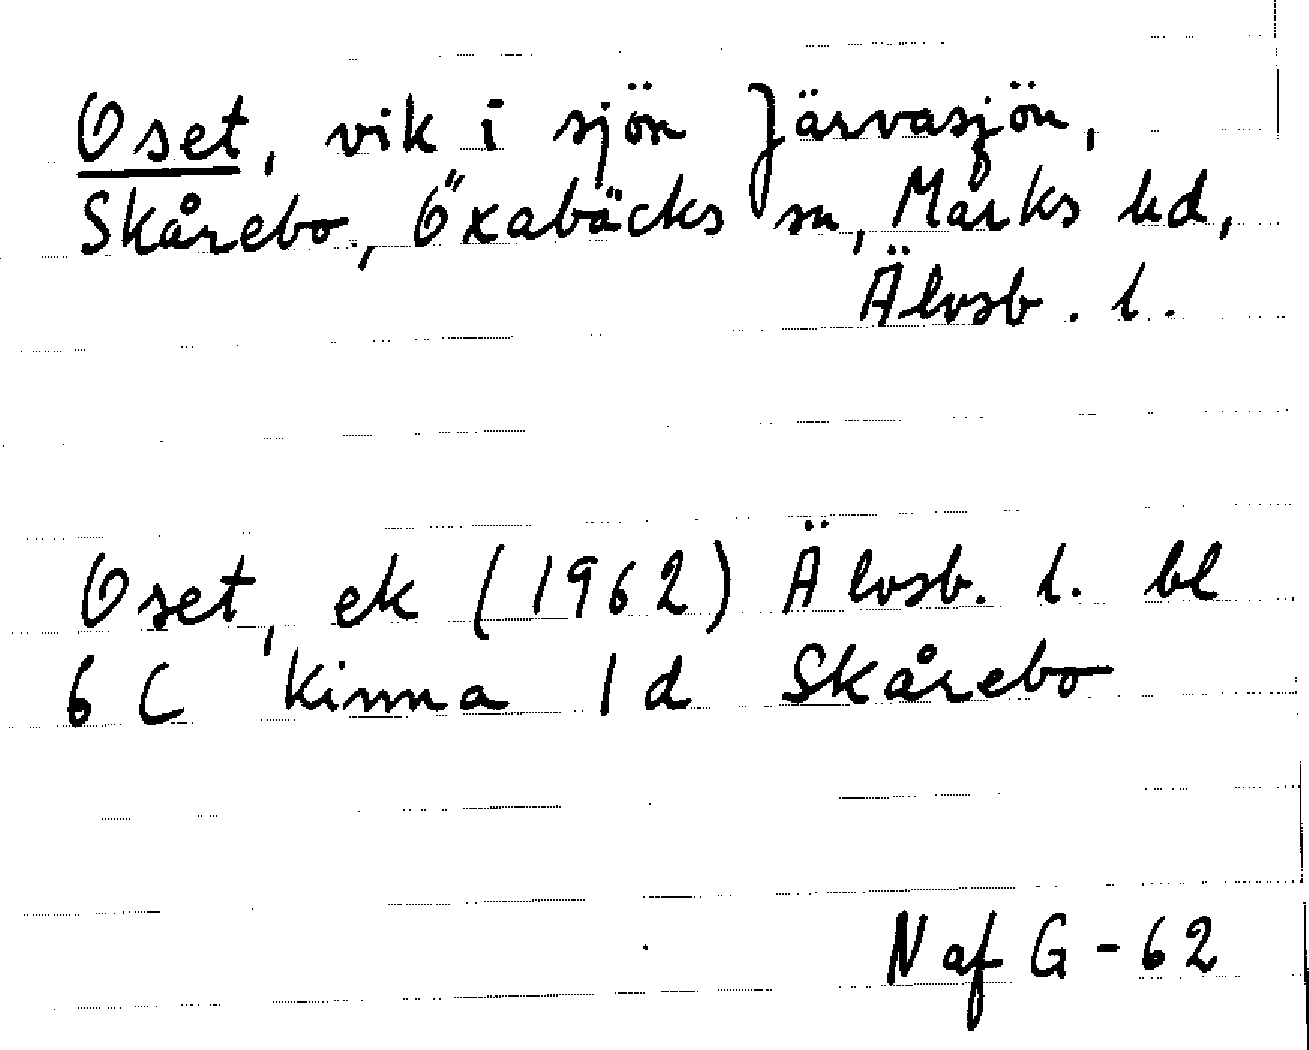 Oset, vik i sjön Järvasjön,
Skårebo, Öxabäcks sn, Marks hd,
Älvsb. l.
Oset, ek (1962) Älvsb. l. bl
6 C Kinna 1 d Skårebo
N af G - 62